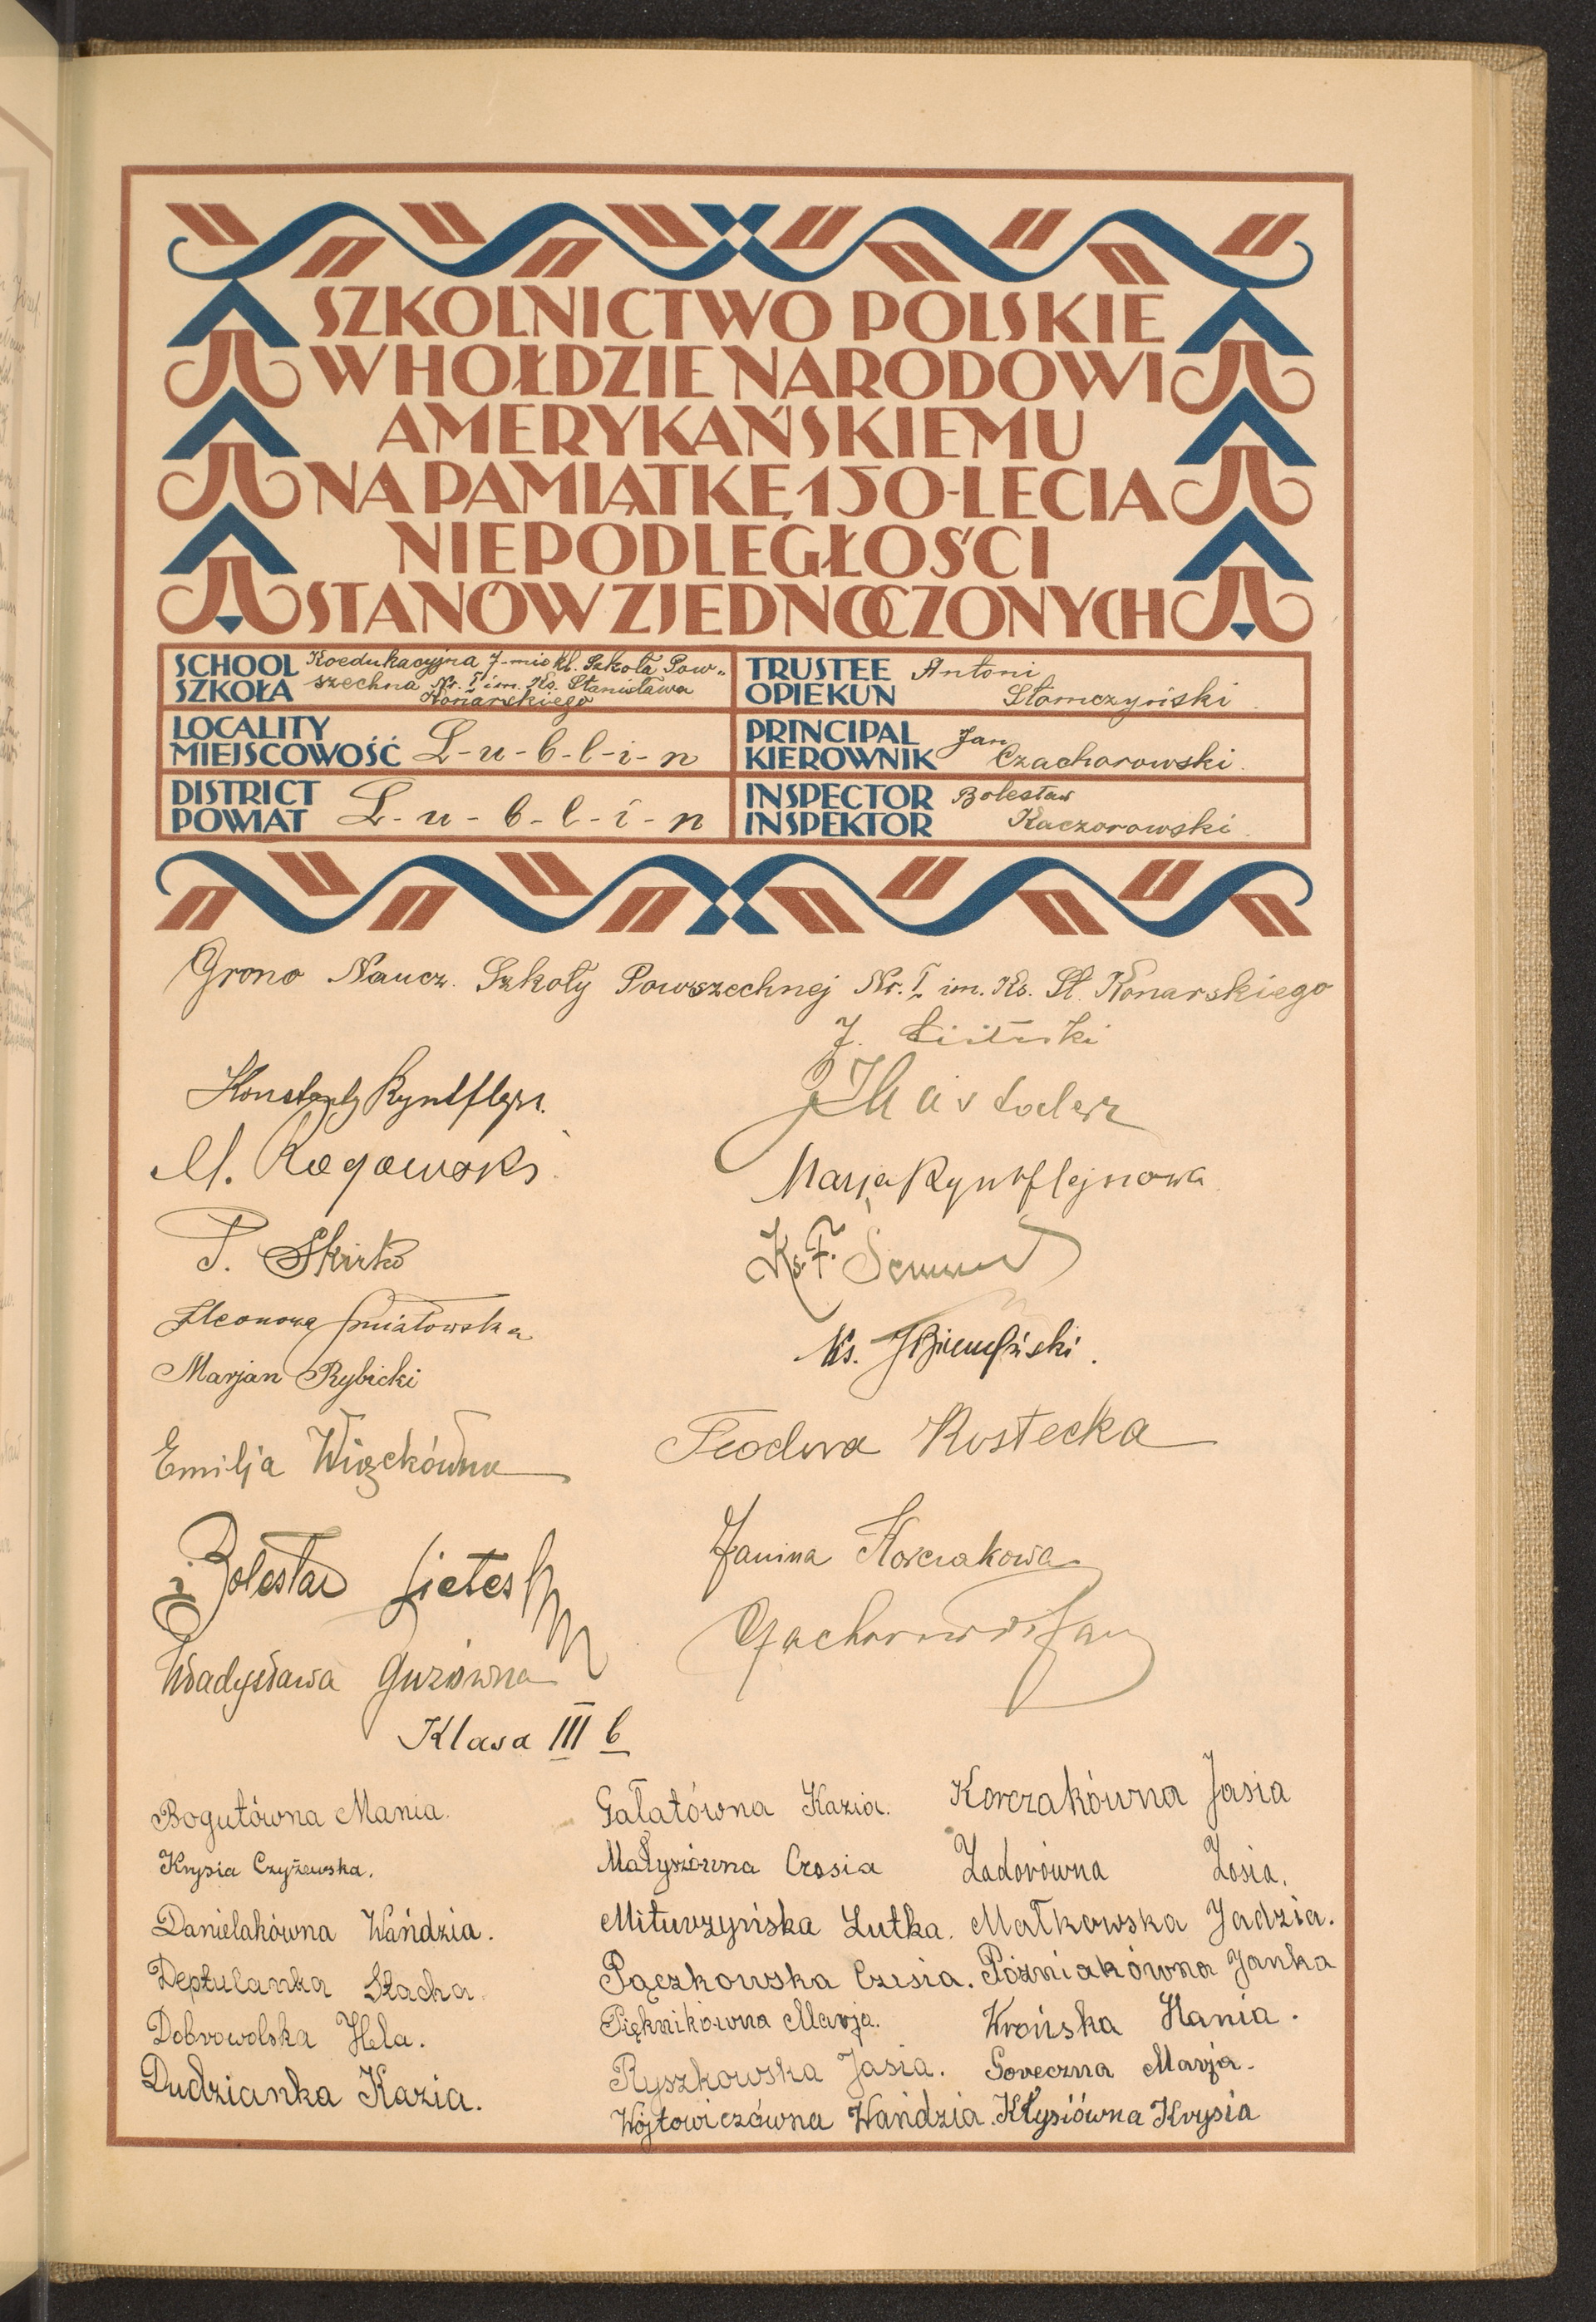 SZKOLNICTWO POLSKIE
W HOŁDZIE NARODOWI
AMERYKAŃSKIEMU
NA PAMIĄTKĘ 150-LECIA
NIEPODLEGŁOŚCI
STANÓW ZJEDNOCZONYCH
SCHOOL
SZKOŁA
Koedukacyjna 7-mio kl. Szkoła Pow-
szechna Nr. I im. Ks. Stanisława
Konarskiego
TRUSTEE
OPIEKUN
Antoni
Słomczyński
LOCALITY
MIEJSCOWOŚĆ
L-u-b-l-i-n
PRINCIPAL
KIEROWNIK
Jan
Czachorowski.
DISTRICT
POWIAT
L-u-b-l-i-n
INSPECTOR
INSPEKTOR
Bolesław
Kaczorowski.
Grono Naucz. Szkoły Powszechnej Nr. I im. Ks. St. Konarskiego
J.
Konstanty Ryntflejsz.
M. Rogowski.
Marja Ryntflejnowa
P. Skirko
Ks. F.
Eleonora Śmiałowska
Ks.
Marjan Rybicki
Teodora Rostecka
Emilja Wiązkówna
Janina Korczakowa
Bolesław
Czachorowski Jan
Władysława Guzówna
Klasa III b
Bogutówna Mania.
Gałatówna Kazia.
Korczakówna Jasia
Krysia Czyżewska.
Małyszówna Czesia
Zadorówna Zosia.
Danielakówna Wańdzia.
Miturzyńska Lutka.
Małkowska Jadzia.
Deptulanka Stacha.
Pączkowska Czesia.
Późniakówna Janka
Dobrowolska Hela.
Pięknikówna Marja.
Krońska Hania.
Dudzianka Kazia.
Ryszkowska Jasia.
Goreczna Marja.
Wójtowiczówna Wańdzia.
Kłysiówna Krysia